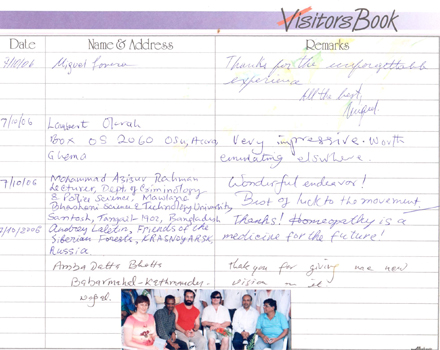 Visitors Book
Date Name & Address Remarks
Miguel
Thanks for the unforgettable
experience
All the best,
Miguel
7/10/06 Lambert
Box OS 2060 Osu, Accra, Very impressive. Worth
Ghana emulating elsewhere.
7/10/06 Mohammad Azizur Rahman Wonderful endeavor!
Lecturer, Dept. of Criminology
& Police Science, Mawlana Best of luck to the movement
Bhashani Science & Technology University
Santosh, Tangail 1902, Bangladesh Thanks! Homeopathy is a
7/10/2006 Andrey Laletin, Friends of the medicine for the future!
Siberian Forests, KRASNOYARSK,
Russia
Amba Datta Bhatta thank you for giving me new
Babarmahal - Kathmandu. vision
Nepal.